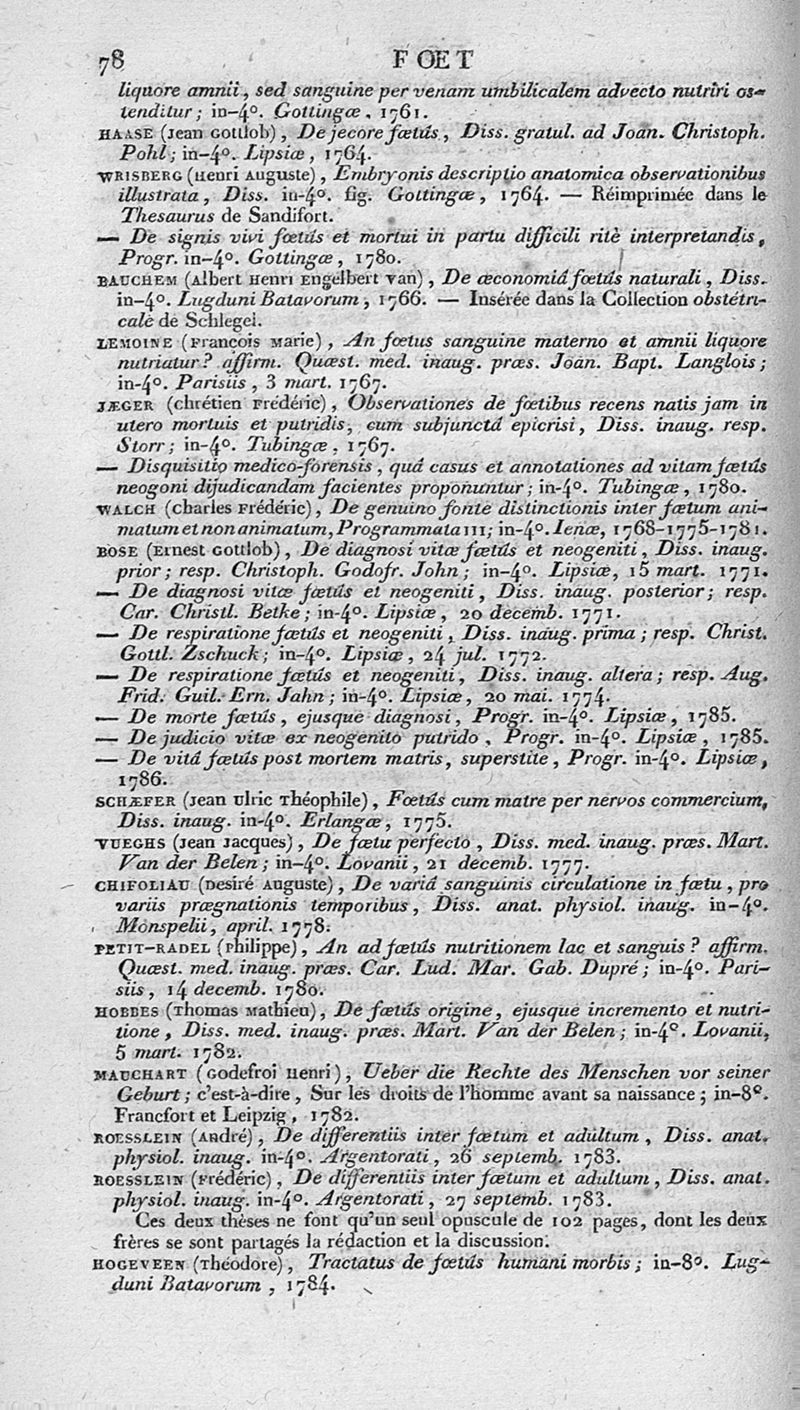 78 FŒT
liquore amnii, sed sanguine per venam umbilicalem advecto nutriri os-
tenditur; in-4°. Gottingæ, 1761.
HAASE (Jean Gottlob), De jecore fœtûs, Diss. gratul. ad Joan. Christoph.
Pohl; in-4°. Lipsiæ, 1764.
WRISBERG (Henri Auguste), Embryonis descriptio anatomica observationibus
illustrata, Diss. in-4°. fig. Gottingæ, 1764. — Réimprimée dans le
Thesaurus de Sandifort.
— De signis vivi fœtûs et mortui in partu difficili ritè interpretandis,
Progr. in-4°. Gottingæ, 1780.
BAUCHEM (Albert Henri Engelbert van), De œconomiâ fœtûs naturali, Diss.
in-4°. Lugduni Batavorum, 1766. — Insérée dans la Collection obstétri-
cale de Schlegel.
LEMOINE (François Marie), An fœtus sanguine materno et amnii liquore
nutriatur? affirm. Quæst. med. inaug. præs. Joan. Bapt. Langlois;
in-4°. Parisiis, 3 mart. 1767.
JÆGER (Chrétien Frédéric), Observationes de fœtibus recens natis jam in
utero mortuis et putridis, cum subjunctâ epicrisi, Diss. inaug. resp.
Storr; in-4°. Tubingæ, 1767.
— Disquisitio medico-forensis, quâ casus et annotationes ad vitam fœtûs
neogoni dijudicandam facientes proponuntur; in-4°. Tubingæ, 1780.
WALCH (Charles Frédéric), De genuino fonte distinctionis inter fœtum ani-
matum et non animatum, Programmata III; in-4°. Ienæ, 1768-1775-1781.
BOSE (Ernest Gottlob), De diagnosi vitæ fœtûs et neogeniti, Diss. inaug.
prior; resp. Christoph. Godofr. John; in-4°. Lipsiæ, 15 mart. 1771.
— De diagnosi vitæ fœtûs et neogeniti, Diss. inaug. posterior; resp.
Car. Christl. Betke; in-4°. Lipsiæ, 20 decemb. 1771.
— De respiratione fœtûs et neogeniti, Diss. inaug. prima; resp. Christ.
Gottl. Zschuck; in-4°. Lipsiæ, 24 jul. 1772.
— De respiratione fœtûs et neogeniti, Diss. inaug. altera; resp. Aug.
Frid. Guil. Ern. Jahn; in-4°. Lipsiæ, 20 mai. 1774.
— De morte fœtûs, ejusque diagnosi, Progr. in-4°. Lipsiæ, 1785.
— De judicio vitæ ex neogenito putrido, Progr. in-4°. Lipsiæ, 1785.
— De vitâ fœtûs post mortem matris, superstite, Progr. in-4°. Lipsiæ,
1786.
SCHÆFER (Jean Ulric Théophile), Fœtûs cum matre per nervos commercium,
Diss. inaug. in-4°. Erlangæ, 1775.
VUEGHS (Jean Jacques), De fœtu perfecto, Diss. med. inaug. præs. Mart.
Van der Belen; in-4°. Lovanii, 21 decemb. 1777.
CHIFOLIAU (Desiré Auguste), De variâ sanguinis circulatione in fœtu, pro
variis prægnationis temporibus, Diss. anat. physiol. inaug. in-4°.
Monspelii, april. 1778.
PETIT-RADEL (Philippe), An ad fœtûs nutritionem lac et sanguis? affirm.
Quæst. med. inaug. præs. Car. Lud. Mar. Gab. Dupré; in-4°. Pari-
siis, 14 decemb. 1780.
HOBBES (Thomas Mathieu), De fœtûs origine, ejusque incremento et nutri-
tione, Diss. med. inaug. præs. Mart. Van der Belen; in-4°. Lovanii,
5 mart. 1782.
MAUCHART (Godefroi Henri), Ueber die Rechte des Menschen vor seiner
Geburt; c'est-à-dire, Sur les droits de l'homme avant sa naissance; in-8°.
Francfort et Leipzig, 1782.
ROESSLEIN (André), De differentiis inter fœtum et adultum, Diss. anat.
physiol. inaug. in-4°. Argentorati, 26 septemb. 1783.
ROESSLEIN (Frédéric), De differentiis inter fœtum et adultum, Diss. anat.
physiol. inaug. in-4°. Argentorati, 27 septemb. 1783.
Ces deux thèses ne font qu'un seul opuscule de 102 pages, dont les deux
frères se sont partagés la rédaction et la discussion.
HOGEVEEN (Théodore), Tractatus de fœtûs humani morbis; in-8°. Lug-
duni Batavorum, 1784.